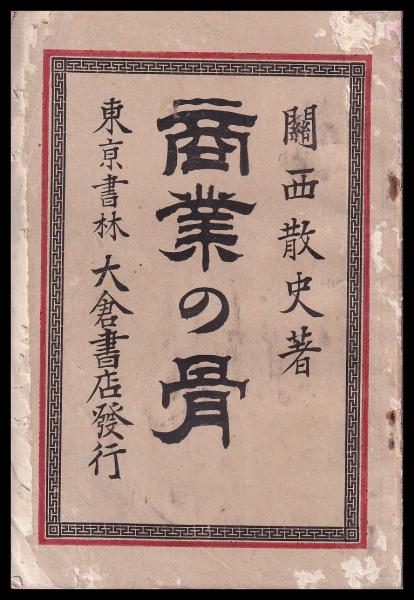 關西散史著
商業の骨
東京書林 大倉書店發行